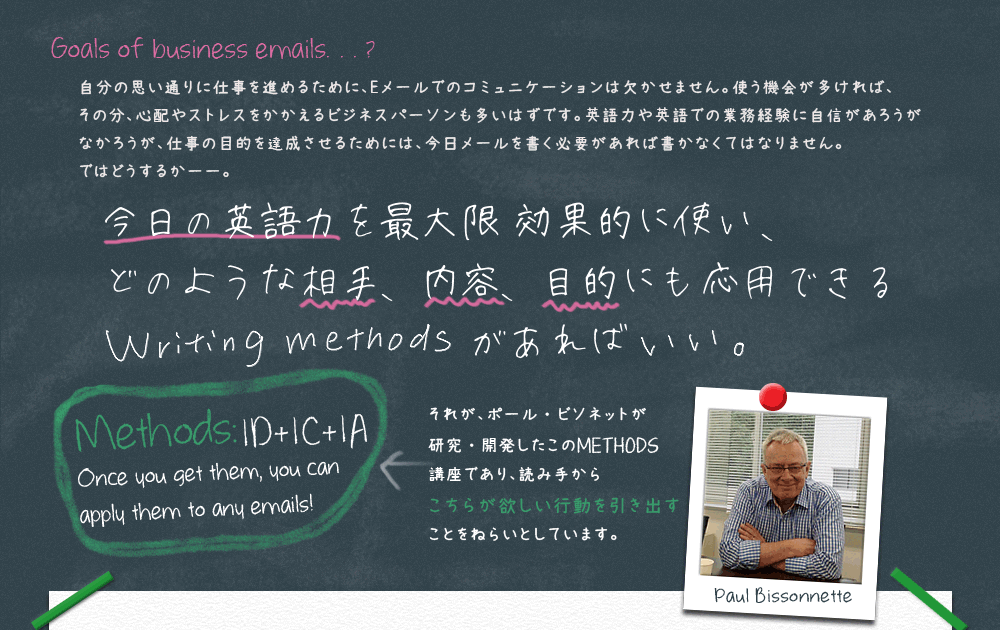 Goals of business emails. . . ?
自分の思い通りに仕事を進めるために、Eメールでのコミュニケーションは欠かせません。使う機会が多ければ、
その分、心配やストレスをかかえるビジネスパーソンも多いはずです。英語力や英語での業務経験に自信があろうが
なかろうが、仕事の目的を達成させるためには、今日メールを書く必要があれば書かなくてはなりません。
ではどうするかーー。
今日の英語力を最大限効果的に使い、
どのような相手、内容、目的にも応用できる
Writing methodsがあればいい。
Methods:ID+IC+IA
Once you get them, you can
apply them to any emails!
それが、ポール・ビソネットが
研究・開発したこのMETHODS
講座であり、読み手から
こちらが欲しい行動を引き出す
ことをねらいとしています。
Paul Bissonnette